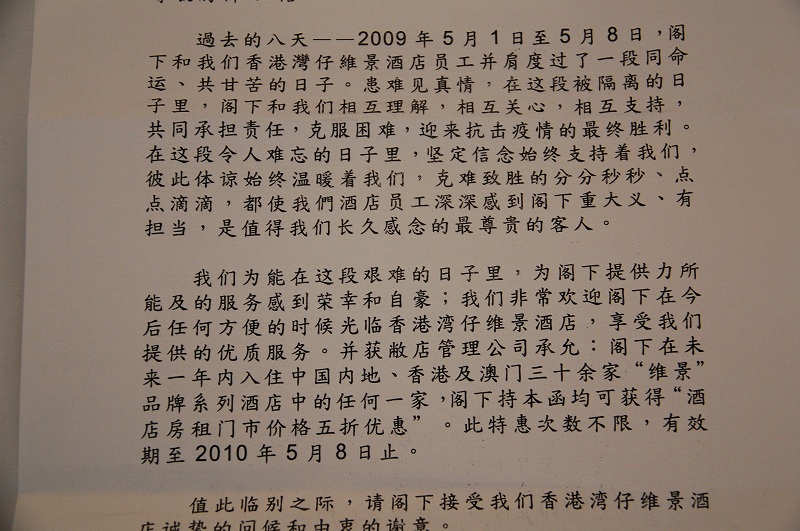 过去的八天——2009 年 5 月 1 日至 5 月 8 日，阁
下和我们香港灣仔維景酒店员工并肩度过了一段同命
运、共甘苦的日子。患难见真情，在这段被隔离的日
子里，阁下和我们相互理解，相互关心，相互支持，
共同承担责任，克服困难，迎来抗击疫情的最终胜利。
在这段令人难忘的日子里，坚定信念始终支持着我们，
彼此体谅始终温暖着我们，克难致胜的分分秒秒、点
点滴滴，都使我們酒店员工深深感到阁下重大义、有
担当，是值得我们长久感念的最尊贵的客人。
我们为能在这段艰难的日子里，为阁下提供力所
能及的服务感到荣幸和自豪；我们非常欢迎阁下在今
后任何方便的时候光临香港湾仔维景酒店，享受我们
提供的优质服务。并获敝店管理公司承允：阁下在未
来一年内入住中国内地、香港及澳门三十余家“维景”
品牌系列酒店中的任何一家，阁下持本函均可获得“酒
店房租门市价格五折优惠”。此特惠次数不限，有效
期至 2010 年 5 月 8 日止。
值此临别之际，请阁下接受我们香港湾仔维景酒
店诚挚的问候和由衷的谢意。